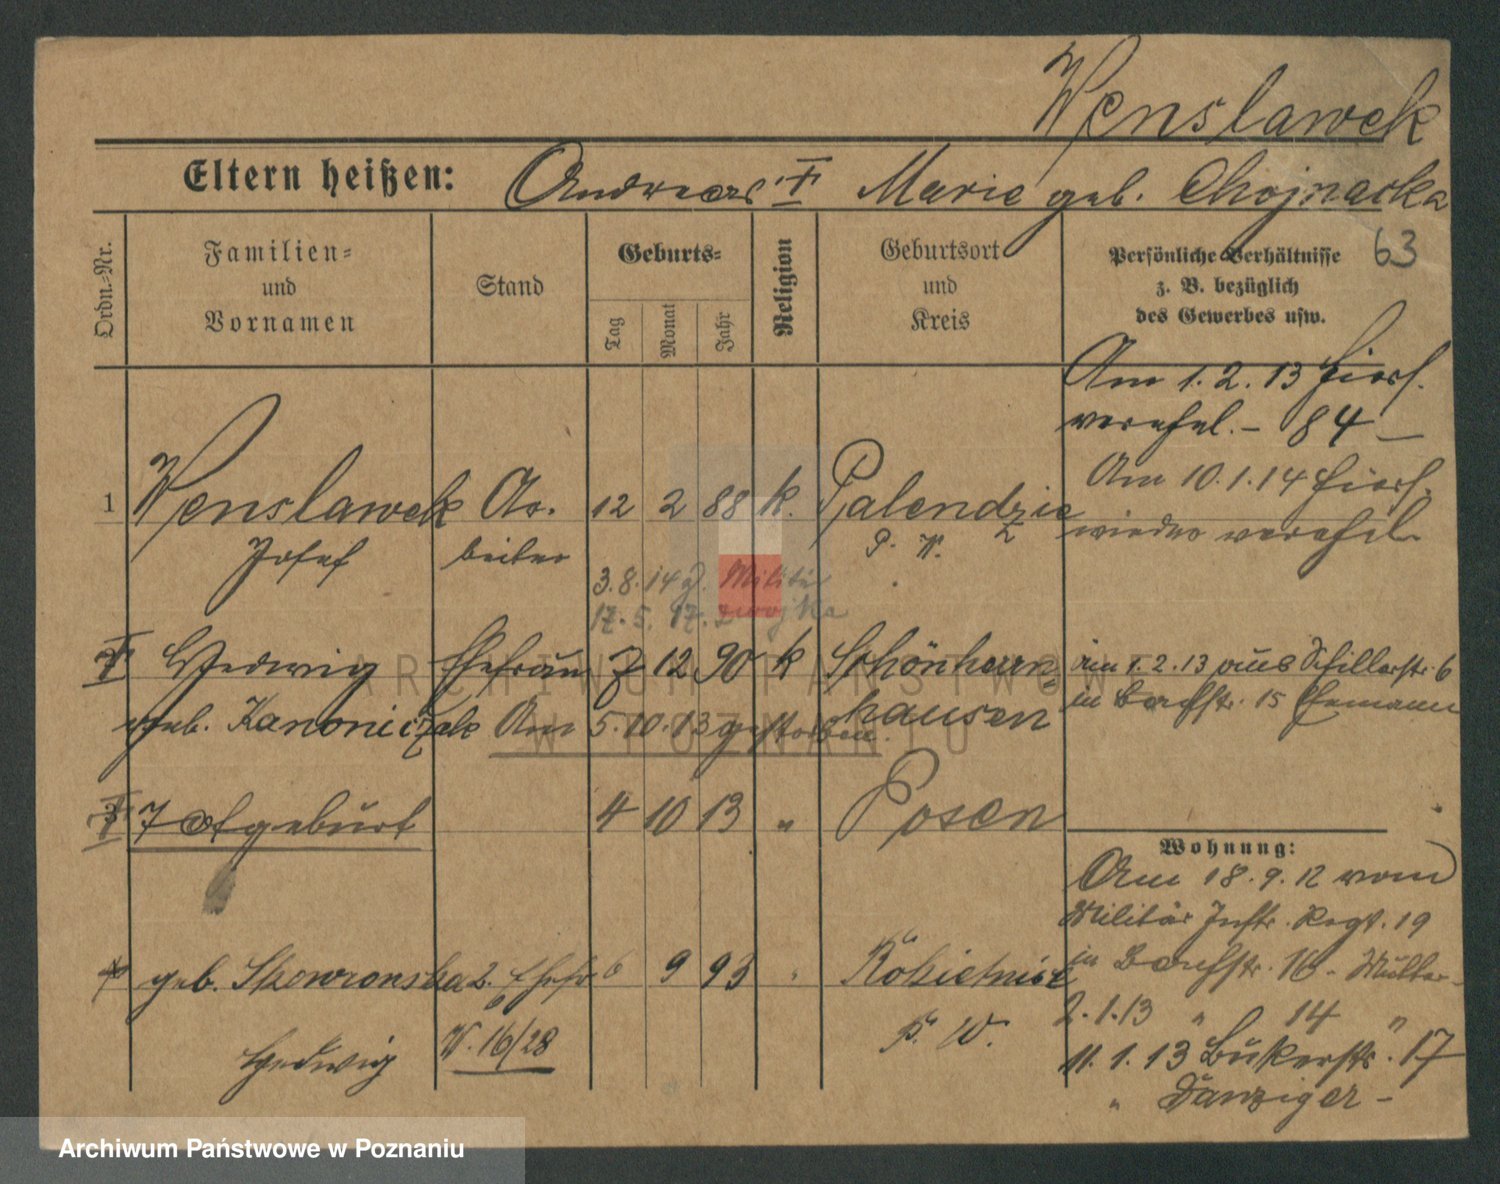 Wenslawek
Eltern heißen: Andreas † Marie geb. Chojnacka
63
Ordn.-Nr.
Familien-
und
Vornamen
Stand
Geburts-
Tag
Monat
Jahr
Religion
Geburtsort
und
Kreis
Persönliche Verhältnisse
z. B. bezüglich
des Gewerbes usw.
Am 1.2.13 hier
verehel. - 84 -
Am 10.1.14 hier
wieder verehel.
1 Wenslawek Ar- 12 2 88 k. Palendzie
Josef beiter P. W.
3.8.14 z. Militär
17.5.17. z wojska
Hedwig Ehefrau 7 12 90 k Schönherrn-
hausen
geb. Kanoniczak Am 5.10.13 gestorben.
am 1.2.13 aus Schillerstr. 6
in 15 Ehemann
Totgeburt 4 10 13 " Posen
geb. Skowronska 2. Ehefr 6 9 93 " Rokietnice
Hedwig W. 16/28 P. W.
Wohnung:
Am 18.9.12 vom
Militär Inftr. Regt. 19
in 16 -
2.1.13 " 14 "
11.1.13 Bukerstr. 17
" Danziger -
ARCHIWUM PAŃSTWOWE
W POZNANIU
Archiwum Państwowe w Poznaniu